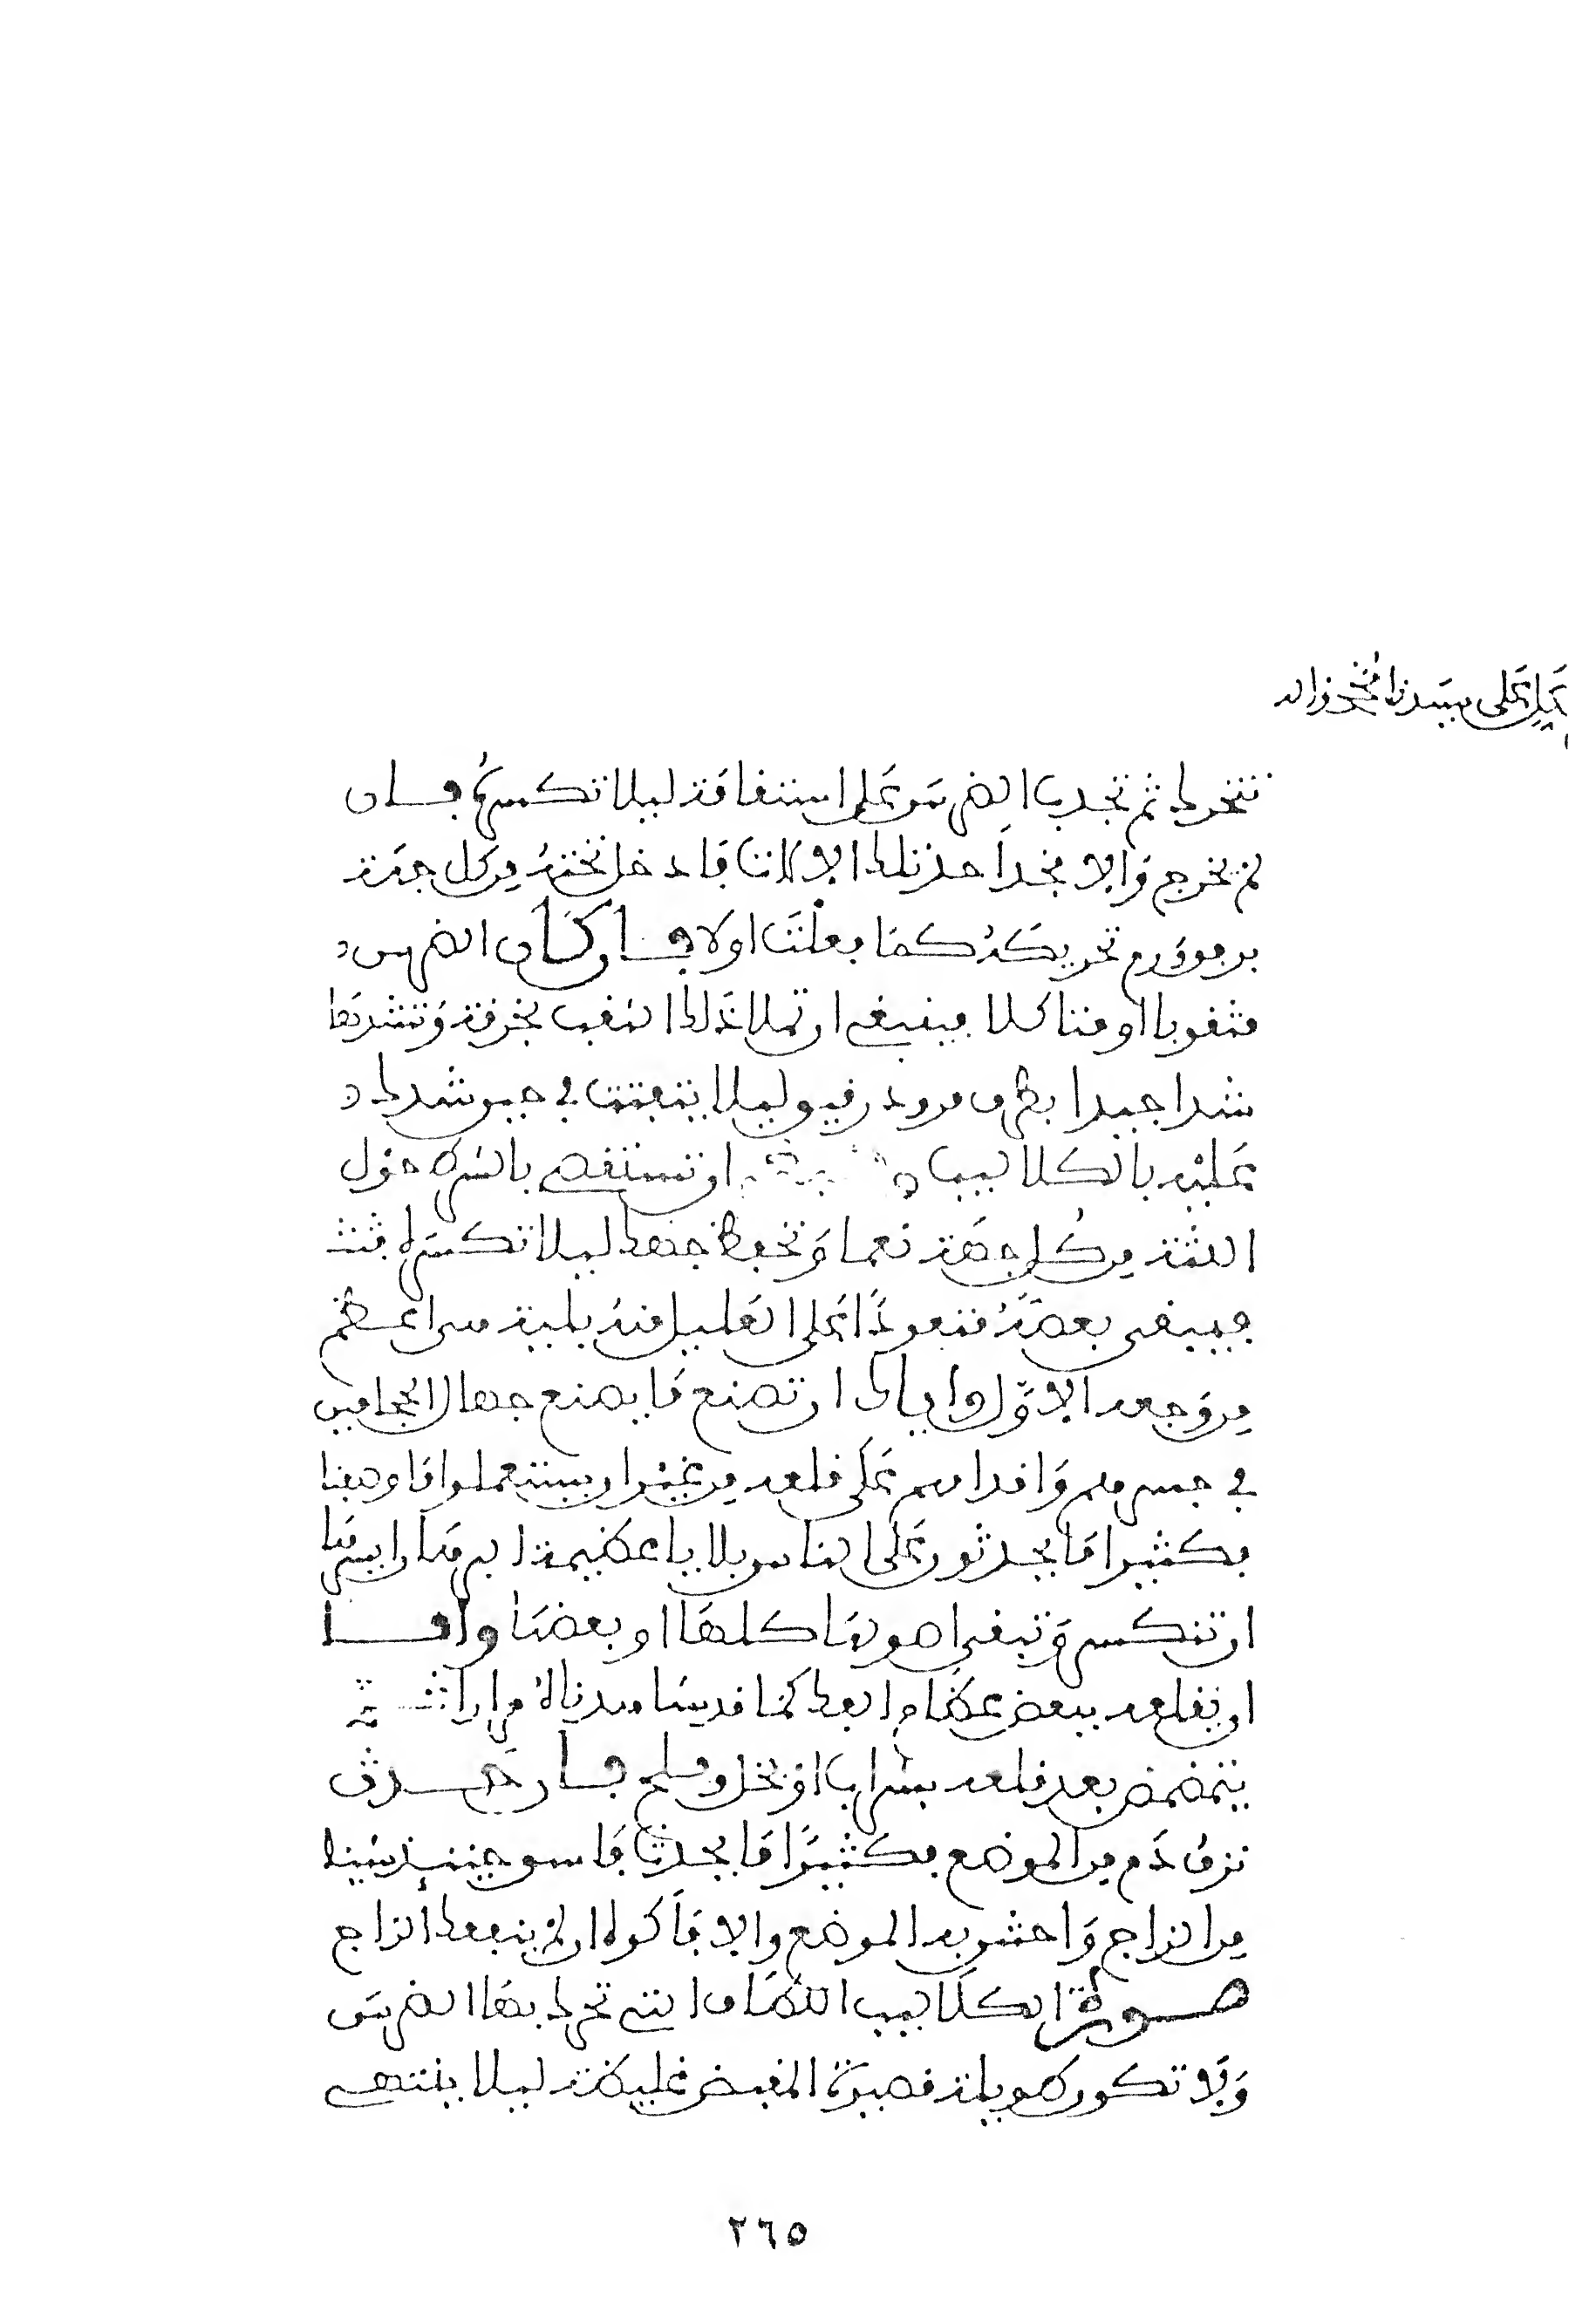 على سيدنا محمد واله
تتحرك ثم تجذب الضرس على استقامة ليلا تكسره فان
لم يخرج والا فخذ احد تلك الالات فادخل تحته من كل جهة
برفق ورم تحريكه كما فعلت اولا فان كان الضرس
مثقوبا او متاكلا فينبغي ان تملا ذلك الثقب بخرقة وتشدها
شدا جيدا بطرف مرود رقيق ليلا يتفتت في حين شدك
عليه بالكلاليب ان تستقصي بالشرط حول
اللثة من كل جهة نعما وتحفظ جهدك ليلا تكسره
فيبقى بعضه فتعود على العليل منه بلية هي اعظم
من وجعه الاول واياك ان تصنع ما يصنع جهال الحجامين
في جسرهم واقدامهم على قلعه من غير ان يستعملوا ما وصفنا
فكثيرا ما يحدثون على الناس بلايا عظيمة ايسرها
ان تنكسر وتبقى اصولها كلها او بعضها واما
ان يقلعه ببعض عظام الفك كما قد شاهدناه مرارا ثم
يتمضمض بعد قلعه بشراب او بخل وملح فان حدث
نزف دم من الموضع فكثيرا ما يحدث فاسحق حينئذ شيئا
من الزاج واحش به الموضع والا فاكوه ان لم ينفعك الزاج
صورة الكلاليب اللطاف التي تحرك بها الضرس
ولا تكون طويلة قصيرة المقبض غليظة ليلا ينثني
٢٦٥